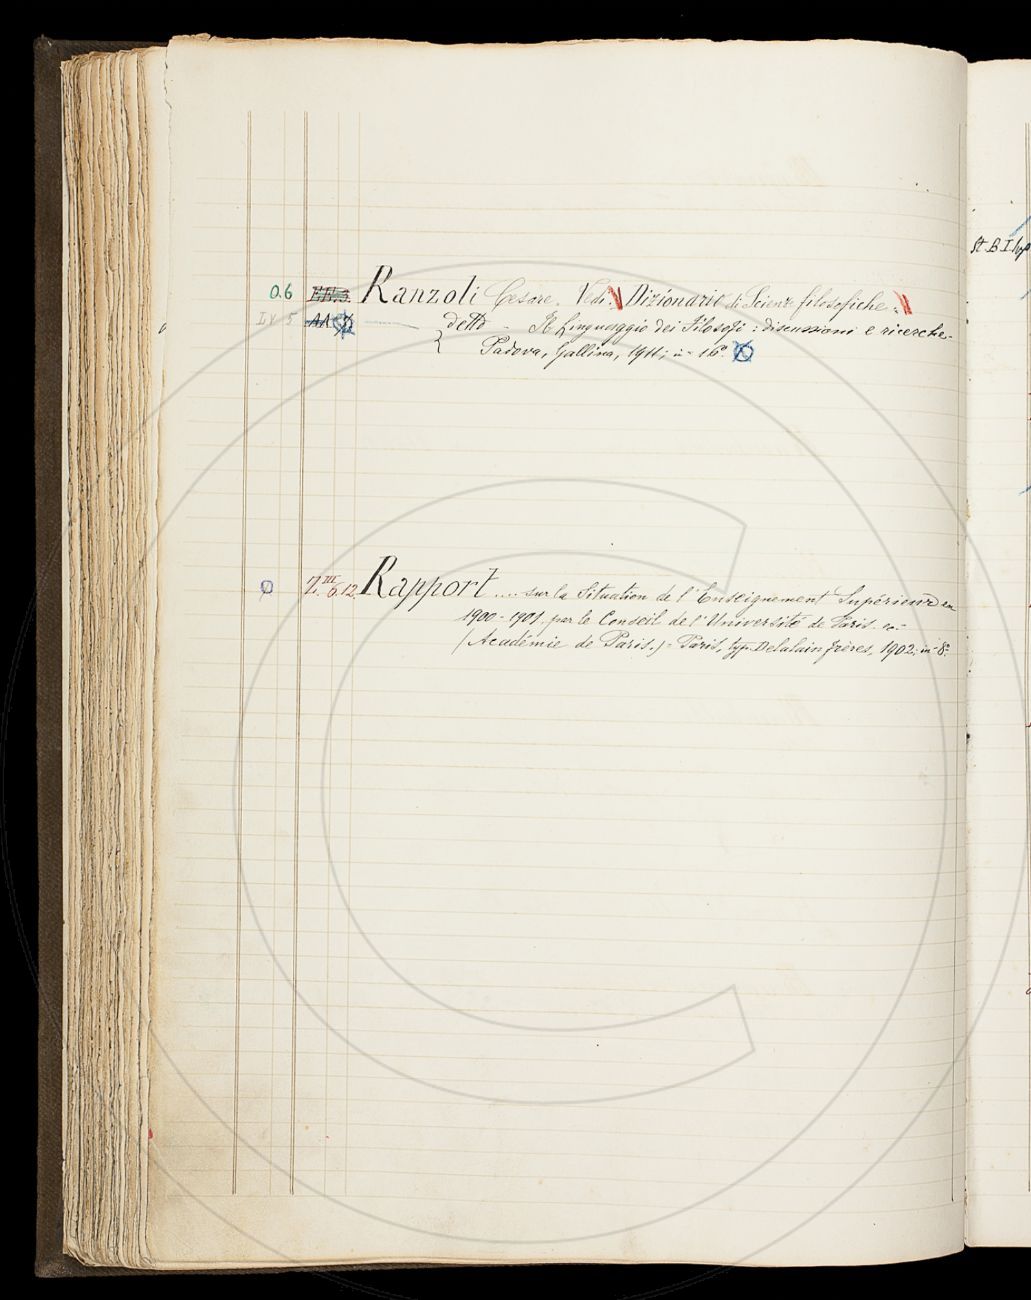 0.6 Ranzoli Cesare. Vedi: Dizionario di Scienze filosofiche.
IV 5 AA detto - Il Linguaggio dei Filosofi: discussioni e ricerche.-
Padova, Gallina, 1911; in-16º.
III 6.12. Rapport .... sur la Situation de l'Enseignement Supérieur en
1900-1901, par le Conseil de l'Université de Paris.
(Académie de Paris.) = Paris, typ. Delalain frères, 1902; in-8º.
St.B.I